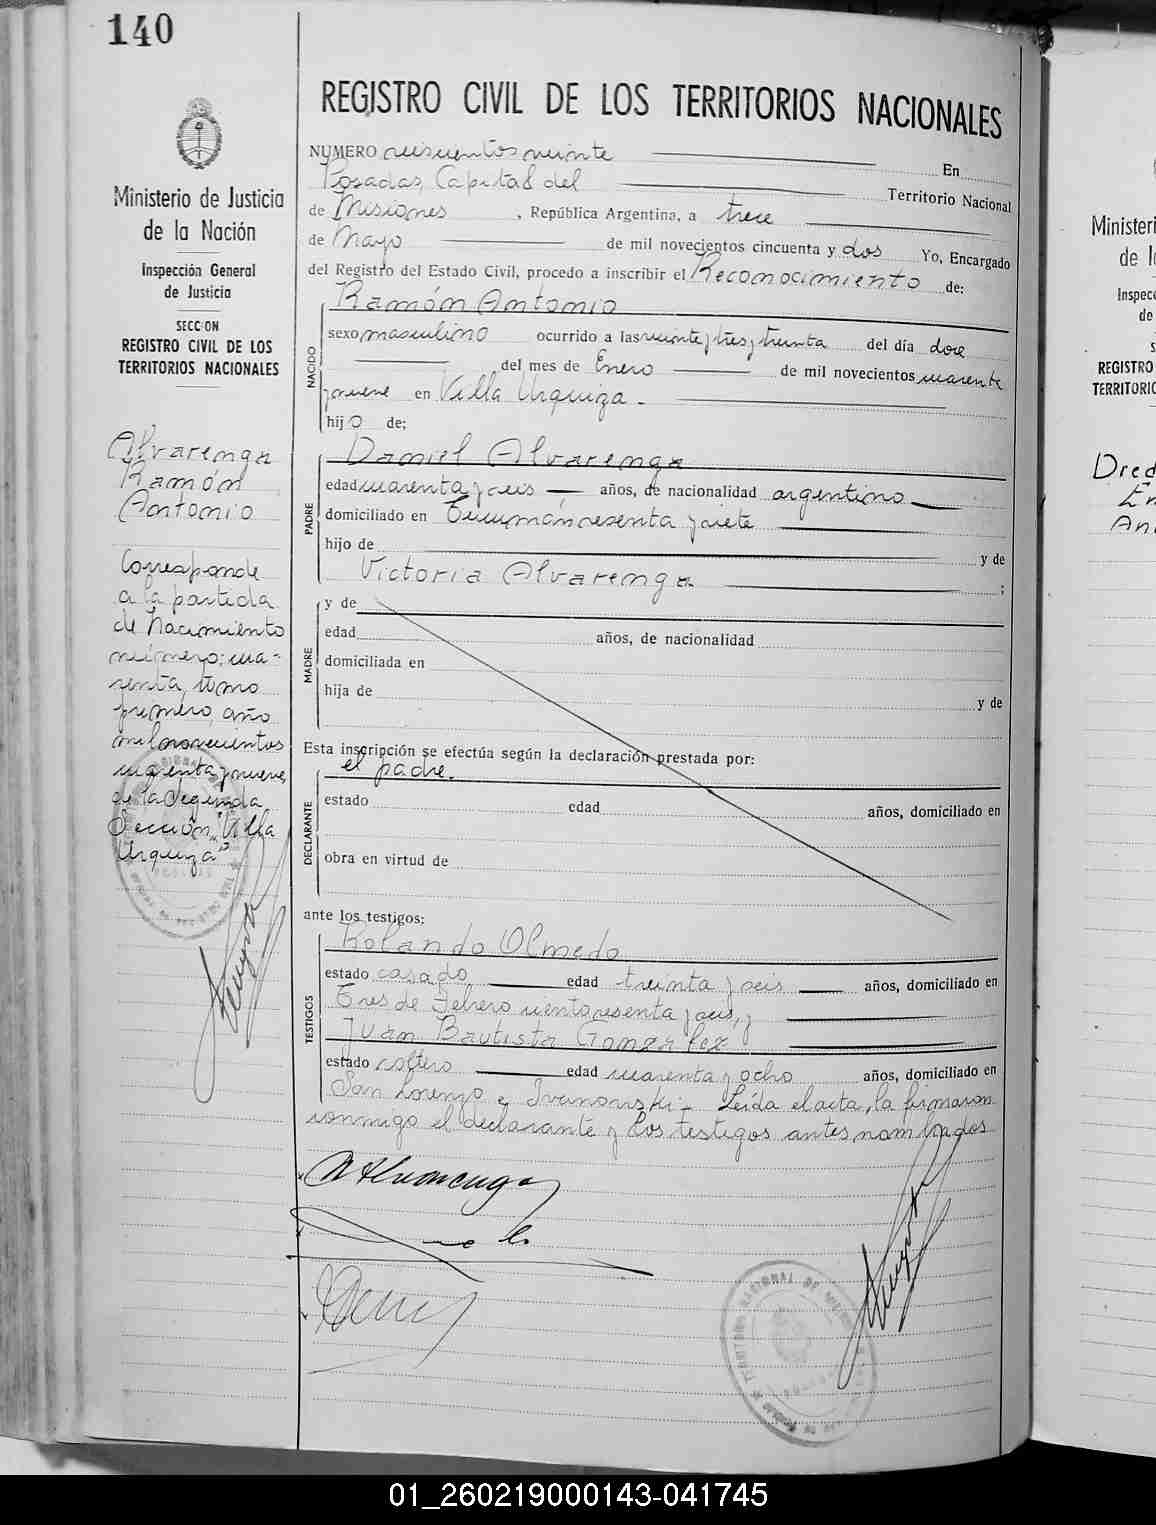 140
REGISTRO CIVIL DE LOS TERRITORIOS NACIONALES
Ministerio de Justicia
de la Nación
Inspección General
de Justicia
SECCION
REGISTRO CIVIL DE LOS
TERRITORIOS NACIONALES
Alvarenga
Ramón
Antonio
Corresponde
a la partida
de Nacimiento
número: cua-
renta, tomo
primero, año
mil novecientos
cuarenta y nueve,
de la Segunda
Sección "Villa
Urquiza"
NUMERO seiscientos veinte En
Posadas, Capital del Territorio Nacional
de Misiones, República Argentina, a trece
de Mayo de mil novecientos cincuenta y dos Yo, Encargado
del Registro del Estado Civil, procedo a inscribir el Reconocimiento de:
Ramón Antonio
NACIDO
sexo masculino ocurrido a las veinte y tres y treinta del día doce
del mes de Enero de mil novecientos cuarenta
y nueve en Villa Urquiza.-
hijo de:
Daniel Alvarenga
PADRE
edad cuarenta y seis años, de nacionalidad argentino
domiciliado en Tucumán sesenta y siete
hijo de y de
Victoria Alvarenga ;
MADRE
y de
edad años, de nacionalidad
domiciliada en
hija de y de
Esta inscripción se efectúa según la declaración prestada por:
el padre.
DECLARANTE
estado edad años, domiciliado en
obra en virtud de
ante los testigos:
Rolando Olmedo
TESTIGOS
estado casado edad treinta y seis años, domiciliado en
Tres de Febrero ciento sesenta y seis, y
Juan Bautista Gonzalez
estado soltero edad cuarenta y ocho años, domiciliado en
San Lorenzo e Ivanowski.- Leída el acta, la firmaron
conmigo el declarante y los testigos antes nombrados
Ministeri
de l
Inspec
de
S
REGISTRO
TERRITORIO
Dred
En
An
01_260219000143-041745